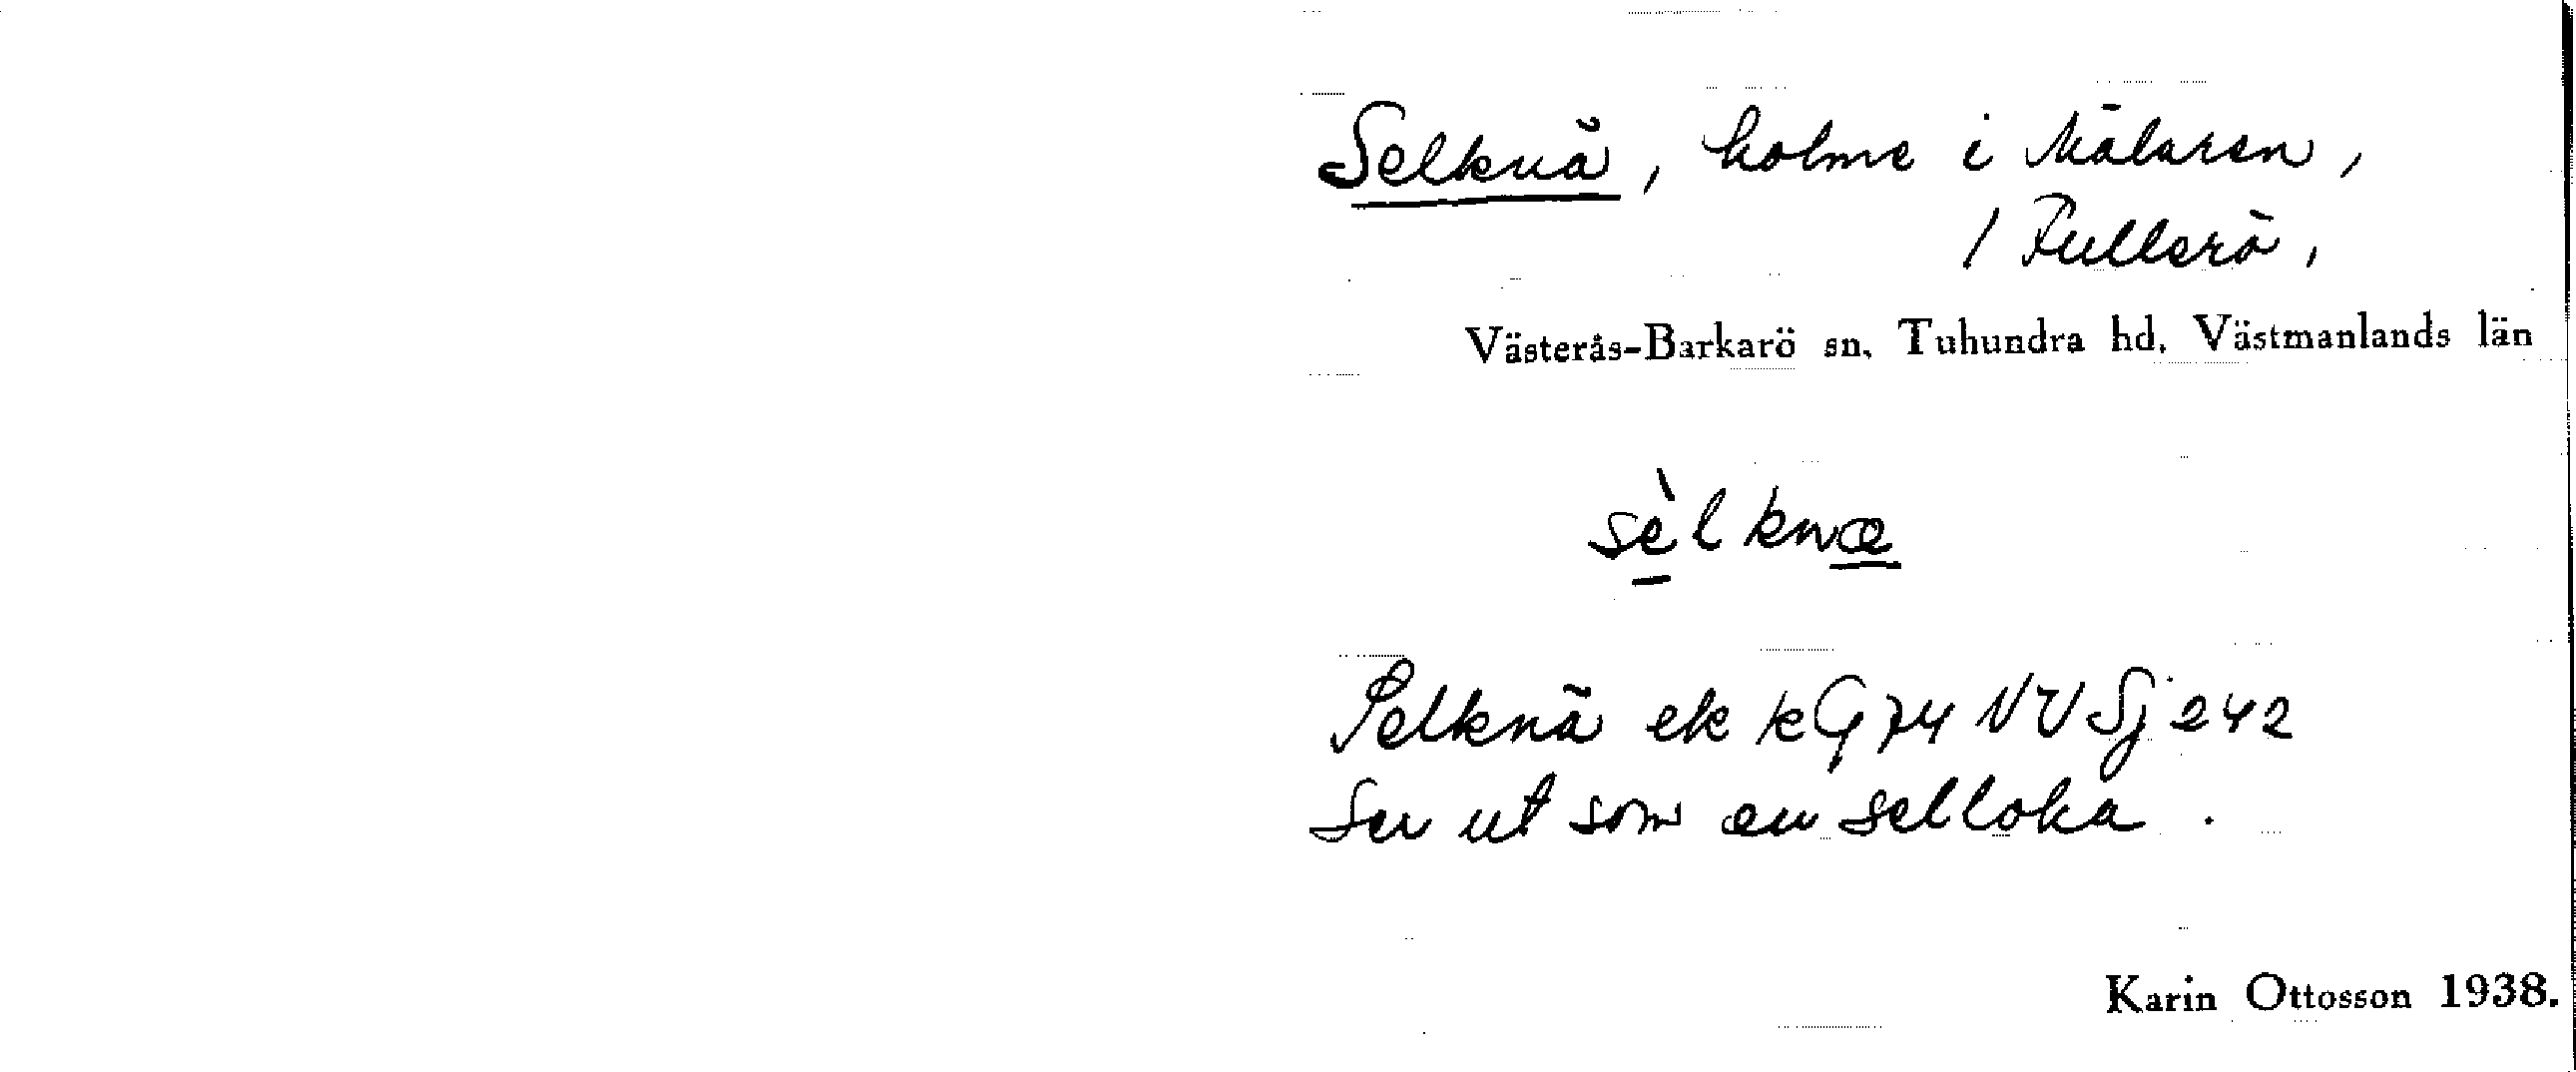 Selknä, holme i Mälaren,
/ Fullerö,
Västerås-Barkarö sn, Tuhundra hd, Västmanlands län
sèlknæ
Selknä ek kG 74 NV Sj 242
Ser ut som en selloka.
Karin Ottosson 1938.